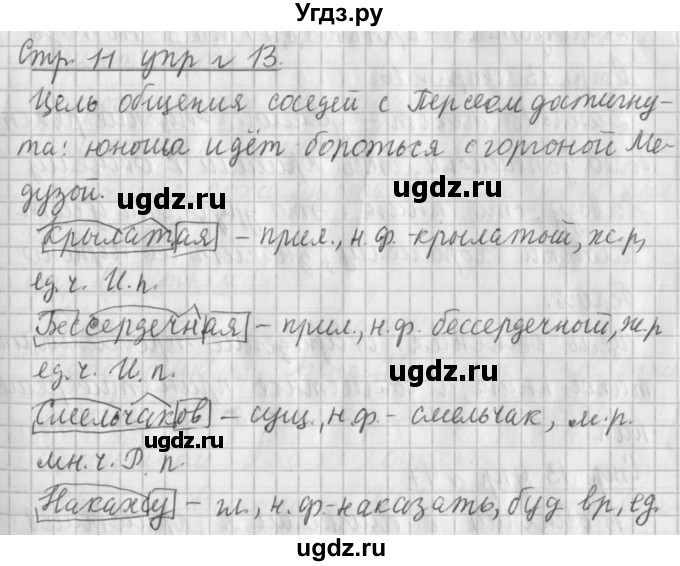 Угдз.ру
Стр 11 упр № 13.
Цель общения соседей с Персеом достигну-
та: юноша идёт бороться с горгоной Ме-
дузой.
ugdz.ru ugdz.ru
Крылатая – прил., н.ф.-крылатый, ж.р,
ед.ч. И.п.
Бессердечная – прил., н.ф. бессердечный, ж.р
ед.ч. И.п.
ugdz.ru ugdz.ru
Смельчаков – сущ., н.ф.- смельчак, м.р.
мн.ч. Р.п.
Накажу – гл., н.ф.-наказать, буд вр, ед.
ugdz.ru